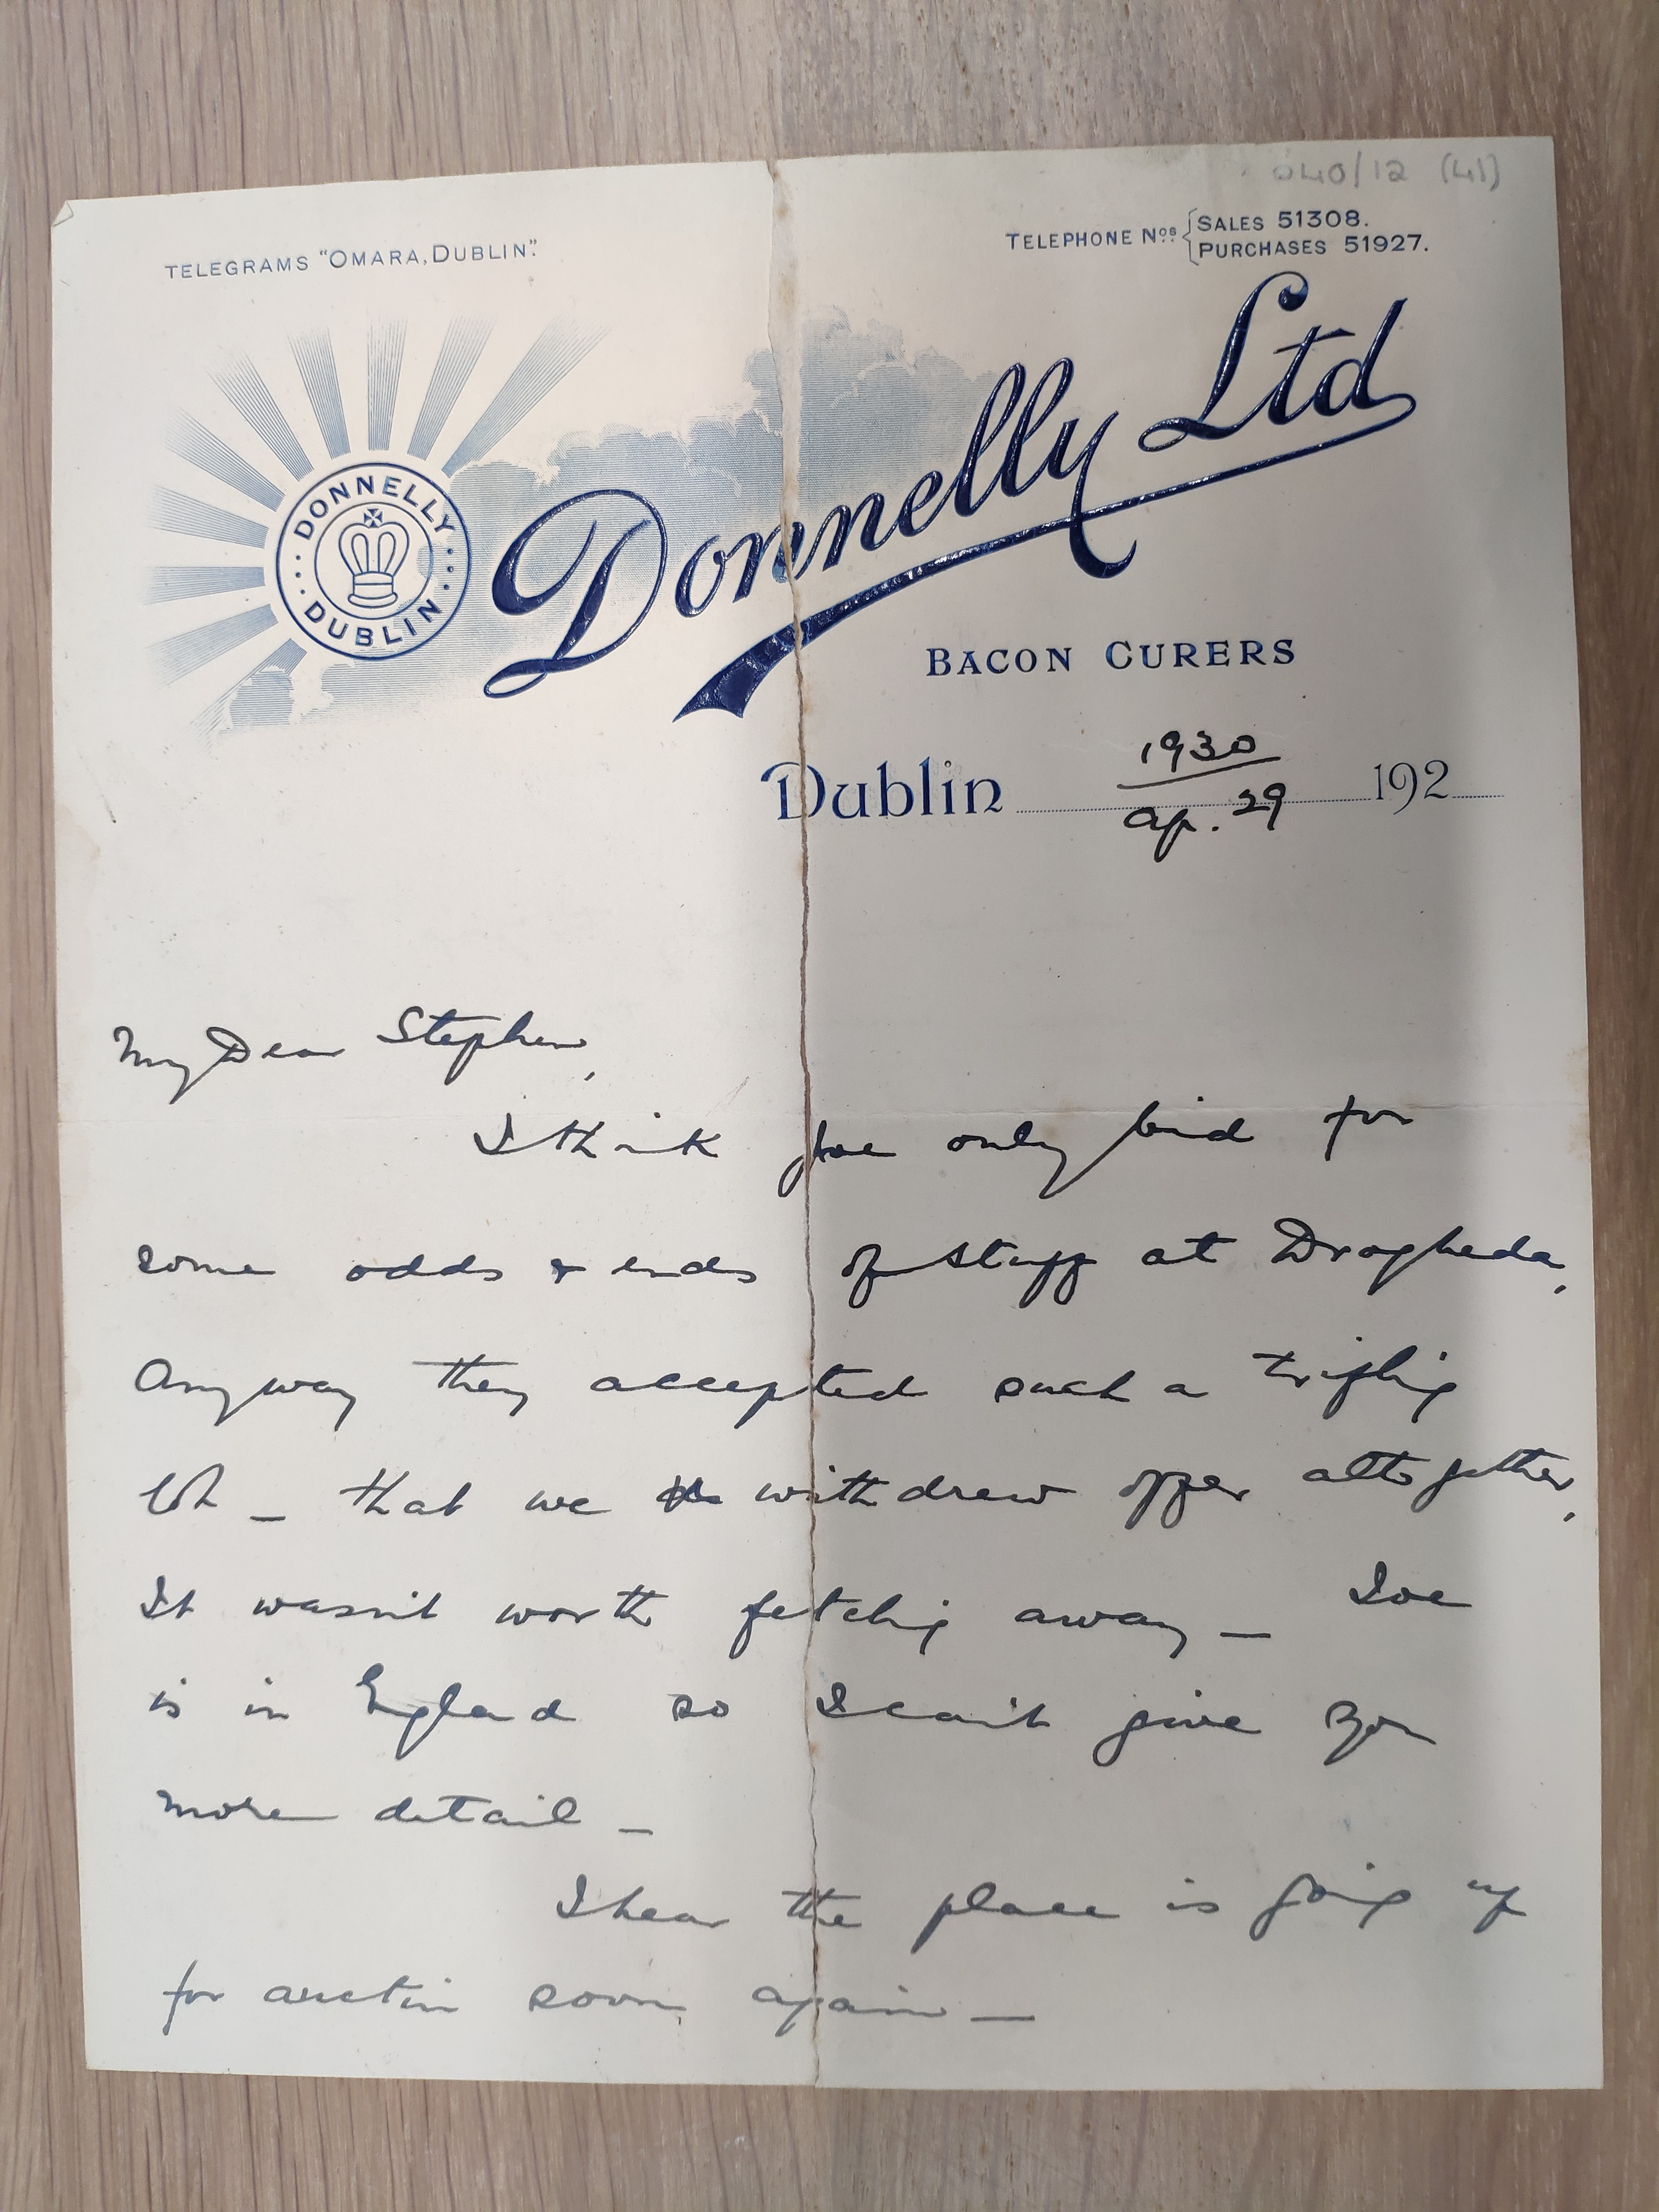 040/12 (41)
TELEGRAMS "OMARA, DUBLIN".
TELEPHONE Nos. SALES 51308.
PURCHASES 51927.
DONNELLY
DUBLIN
Donnelly Ltd
BACON CURERS
1930
Dublin ap. 29 192
My Dear Stephen,
I think Joe only bid for
some odds & ends of stuff at Drogheda,
Anyway they accepted such a trifling
lot _ that we withdrew offer altogether,
It wasn't worth fetching away _ Joe
is in England so I can't give you
more detail _
I hear the place is going up
for auction soon again _